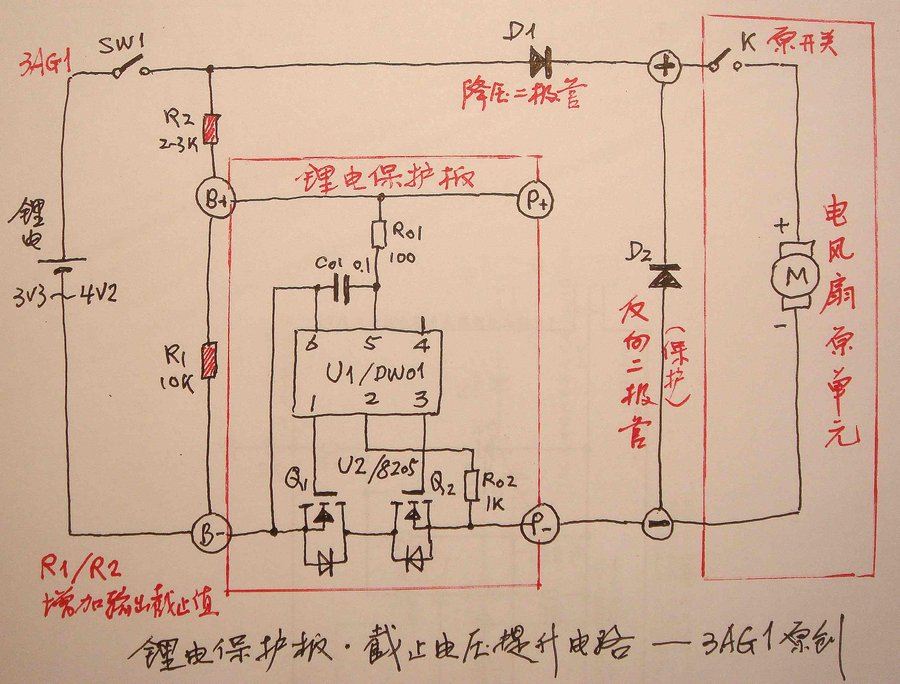 3AG1
SW1
D1
降压二极管
K
原开关
R2
2-3K
锂电保护板
B+
P+
锂电
3V3~4V2
R01
100
C01
0.1
6 5 4
U1/DW01
1 2 3
R1
10K
D2
反向二极管
(保护)
+
M
-
电风扇原单元
U2/8205
Q1
Q2
R02
1K
B-
P-
+
-
R1/R2
增加输出截止值
锂电保护板·截止电压提升电路 — 3AG1原创